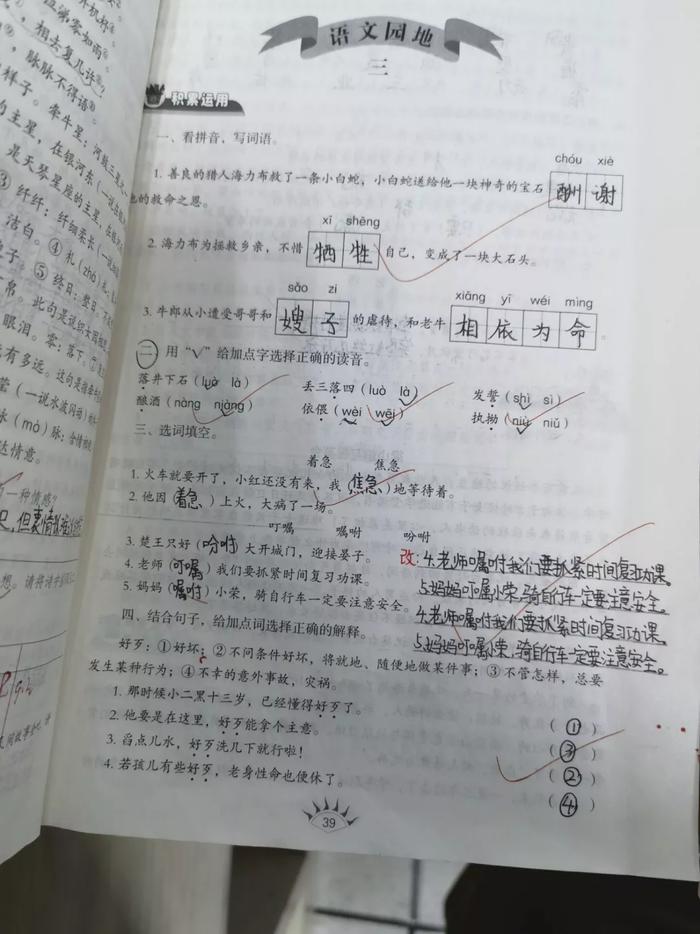 语文园地
三
积累运用
一、看拼音，写词语。
chóu xiè
1. 善良的猎人海力布救了一条小白蛇，小白蛇送给他一块神奇的宝石 酬谢
他的救命之恩。
xī shēng
2. 海力布为拯救乡亲，不惜 牺牲 自己，变成了一块大石头。
sǎo zi xiāng yī wéi mìng
3. 牛郎从小遭受哥哥和 嫂子 的虐待，和老牛 相依为命 。
二、用“√”给加点字选择正确的读音。
落井下石（luò là） 丢三落四（luò là） 发誓（shì sì）
酿酒（nàng niàng） 依偎（wèi wēi） 执拗（niù niǔ）
三、选词填空。
着急 焦急
1. 火车就要开了，小红还没有来，我（焦急）地等待着。
2. 他因（着急）上火，大病了一场。
叮嘱 嘱咐 吩咐
3. 楚王只好（吩咐）大开城门，迎接晏子。
4. 老师（叮嘱）我们要抓紧时间复习功课。
5. 妈妈（嘱咐）小荣，骑自行车一定要注意安全。
改：4.老师嘱咐我们要抓紧时间复习功课。
5.妈妈叮嘱小荣，骑自行车一定要注意安全。
4.老师嘱咐我们要抓紧时间复习功课。
5.妈妈叮嘱小荣，骑自行车一定要注意安全。
四、结合句子，给加点词选择正确的解释。
好歹：①好坏；②不问条件好坏，将就地、随便地做某件事；③不管怎样，总要
发生某种行为；④不幸的意外事故，灾祸。
1. 那时候小二黑十三岁，已经懂得好歹了。 （①）
2. 他要是在这里，好歹能拿个主意。 （③）
3. 舀点儿水，好歹洗几下就行啦！ （②）
4. 若孩儿有些好歹，老身性命也便休了。 （④）
39